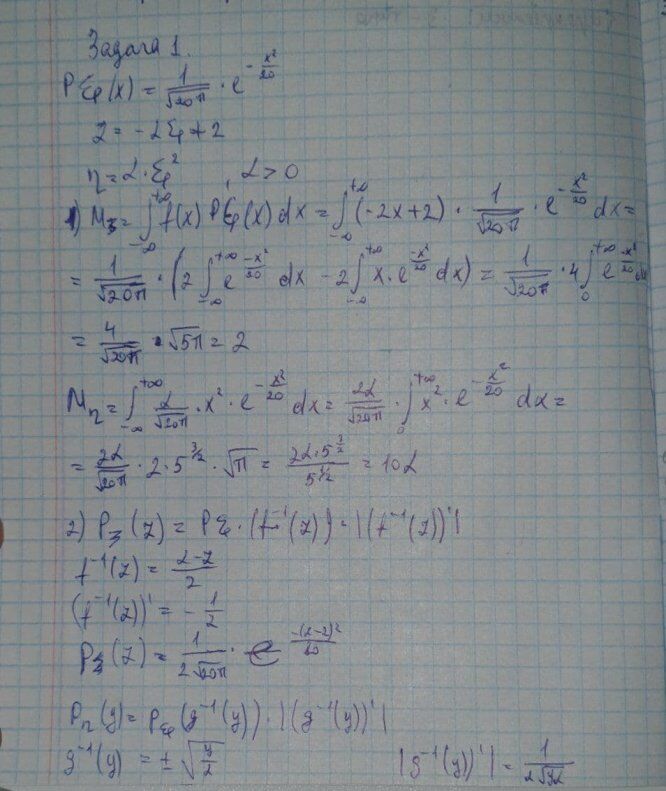 Задача 1.
P_ξ(x) = 1/√(20π) · e^(-x²/20)
z = -2ξ + 2
η = α · ξ² , α > 0
1) M_ζ = ∫_{-∞}^{+∞} f(x) P_ξ(x) dx = ∫_{-∞}^{+∞} (-2x+2) · 1/√(20π) · e^(-x²/20) dx =
= 1/√(20π) · (2 ∫_{-∞}^{+∞} e^(-x²/20) dx - 2 ∫_{-∞}^{+∞} x · e^(-x²/20) dx) = 1/√(20π) · 4 ∫_0^{+∞} e^(-x²/20) dx
= 4/√(20π) · √5π = 2
M_η = ∫_{-∞}^{+∞} α/√(20π) · x² · e^(-x²/20) dx = 2α/√(20π) · ∫_0^{+∞} x² · e^(-x²/20) dx =
= 2α/√(20π) · 2 · 5^(3/2) · √π = 2α·5^(3/2)/5^(1/2) = 10α
2) P_ζ(z) = P_ξ · (f⁻¹(z)) · |(f⁻¹(z))'|
f⁻¹(z) = (2-z)/2
(f⁻¹(z))' = -1/2
P_ζ(z) = 1/(2√(20π)) · e^(-(2-z)²/80)
P_η(y) = P_ξ(g⁻¹(y)) · |(g⁻¹(y))'|
g⁻¹(y) = ±√(y/α) |g⁻¹(y))'| = 1/(2√(yα))